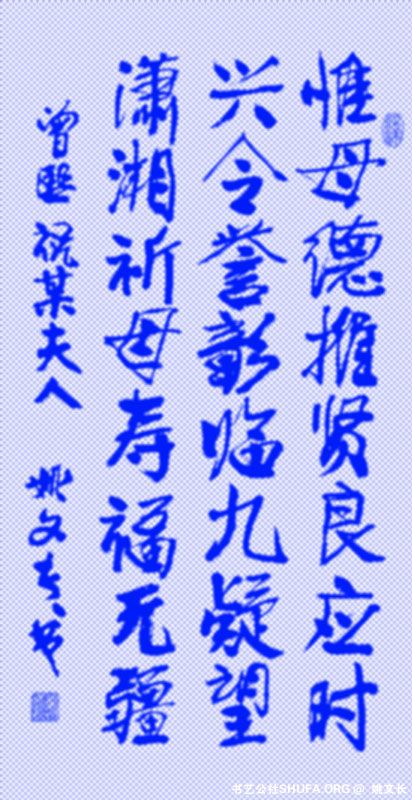 惟母德推贤良应时
兴令誉彰临九疑望
潇湘祈母寿福无疆
曾熙 祝某夫人 姚文长书
书艺公社SHUFA.ORG @ 姚文长